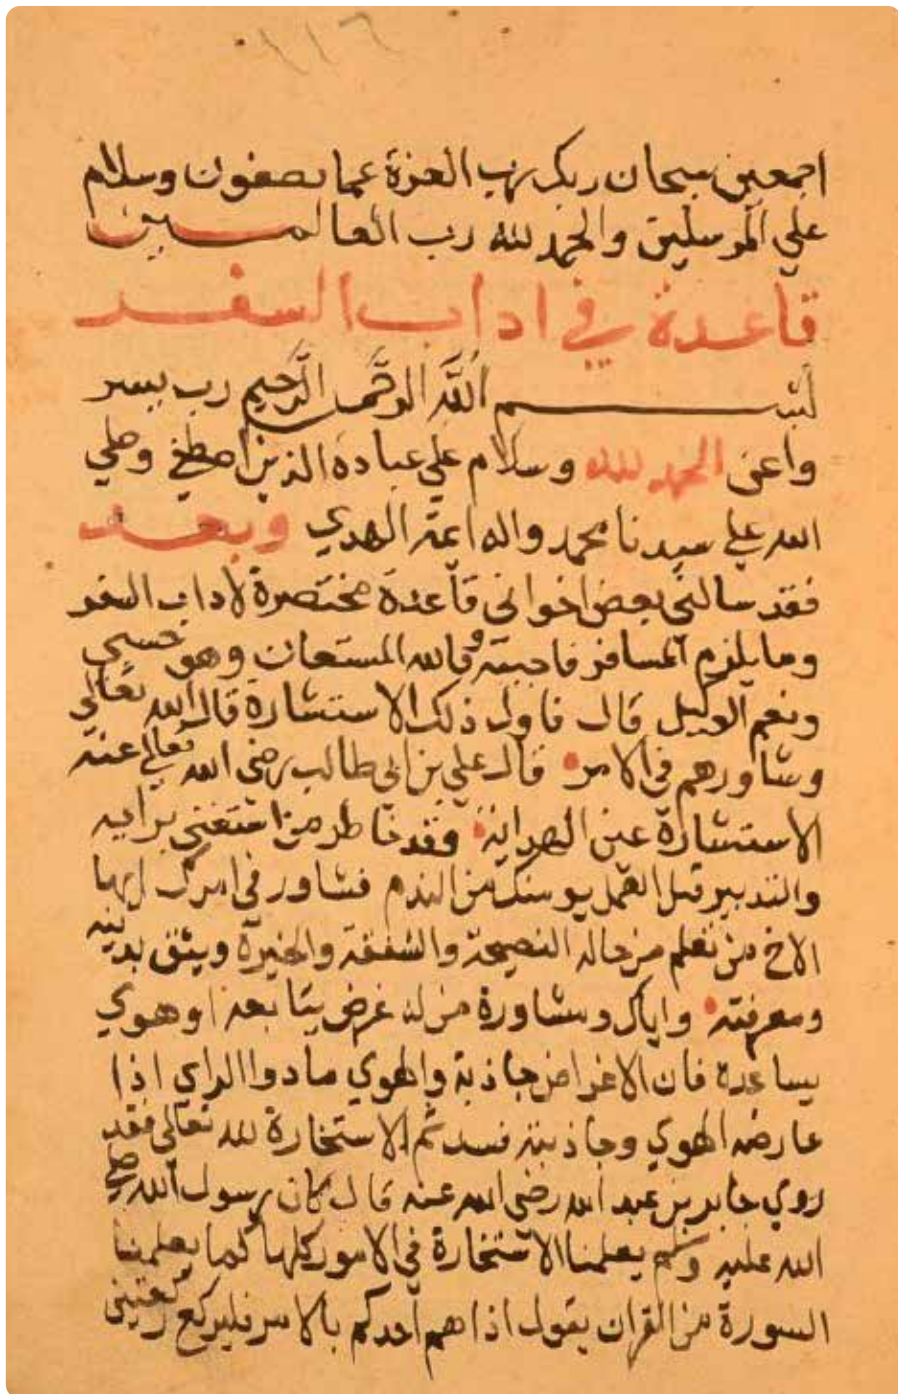 ١١٦
اجمعين سبحان ربك رب العزة عما يصفون وسلام
علي المرسلين والحمد لله رب العالمين
قاعدة في اداب السفر
بسم الله الرحمن الرحيم رب يسر
واعن الحمد لله وسلام علي عباده الذين اصطفي وصلي
الله علي سيدنا محمد واله ائمة الهدي وبعد
فقد سالني بعض اخواني قاعدة مختصرة لاداب السفر
وما يلزم المسافر فاجبته وبالله المستعان وهو حسبي
ونعم الوكيل قال فاول ذلك الاستشارة قال الله تعالي
وشاورهم في الامر قال علي بن ابي طالب رضي الله تعالي عنه
الاستشارة عين الهداية وقد خاطر من استغني برايه
والتدبير قبل العمل يومنك من الندم فشاور في امرك ايها
الاخ من تعلم من حاله النصيحة والشفقة والخبرة ويثق بدينه
ومعرفته واياك ومشاورة من له غرض يتابعه او هوي
يساعده فان الاغراض جاذبة والهوي الراي اذا
عارضه الهوي وجاذبته فسد ثم الاستخارة لله تعالي فقد
روي جابر بن عبد الله رضي الله عنه قال كان رسول الله صلي
الله عليه وسلم يعلمنا الاستخارة في الامور كلها كما يعلمنا
السورة من القران يقول اذا هم احدكم بالامر فليركع ركعتين